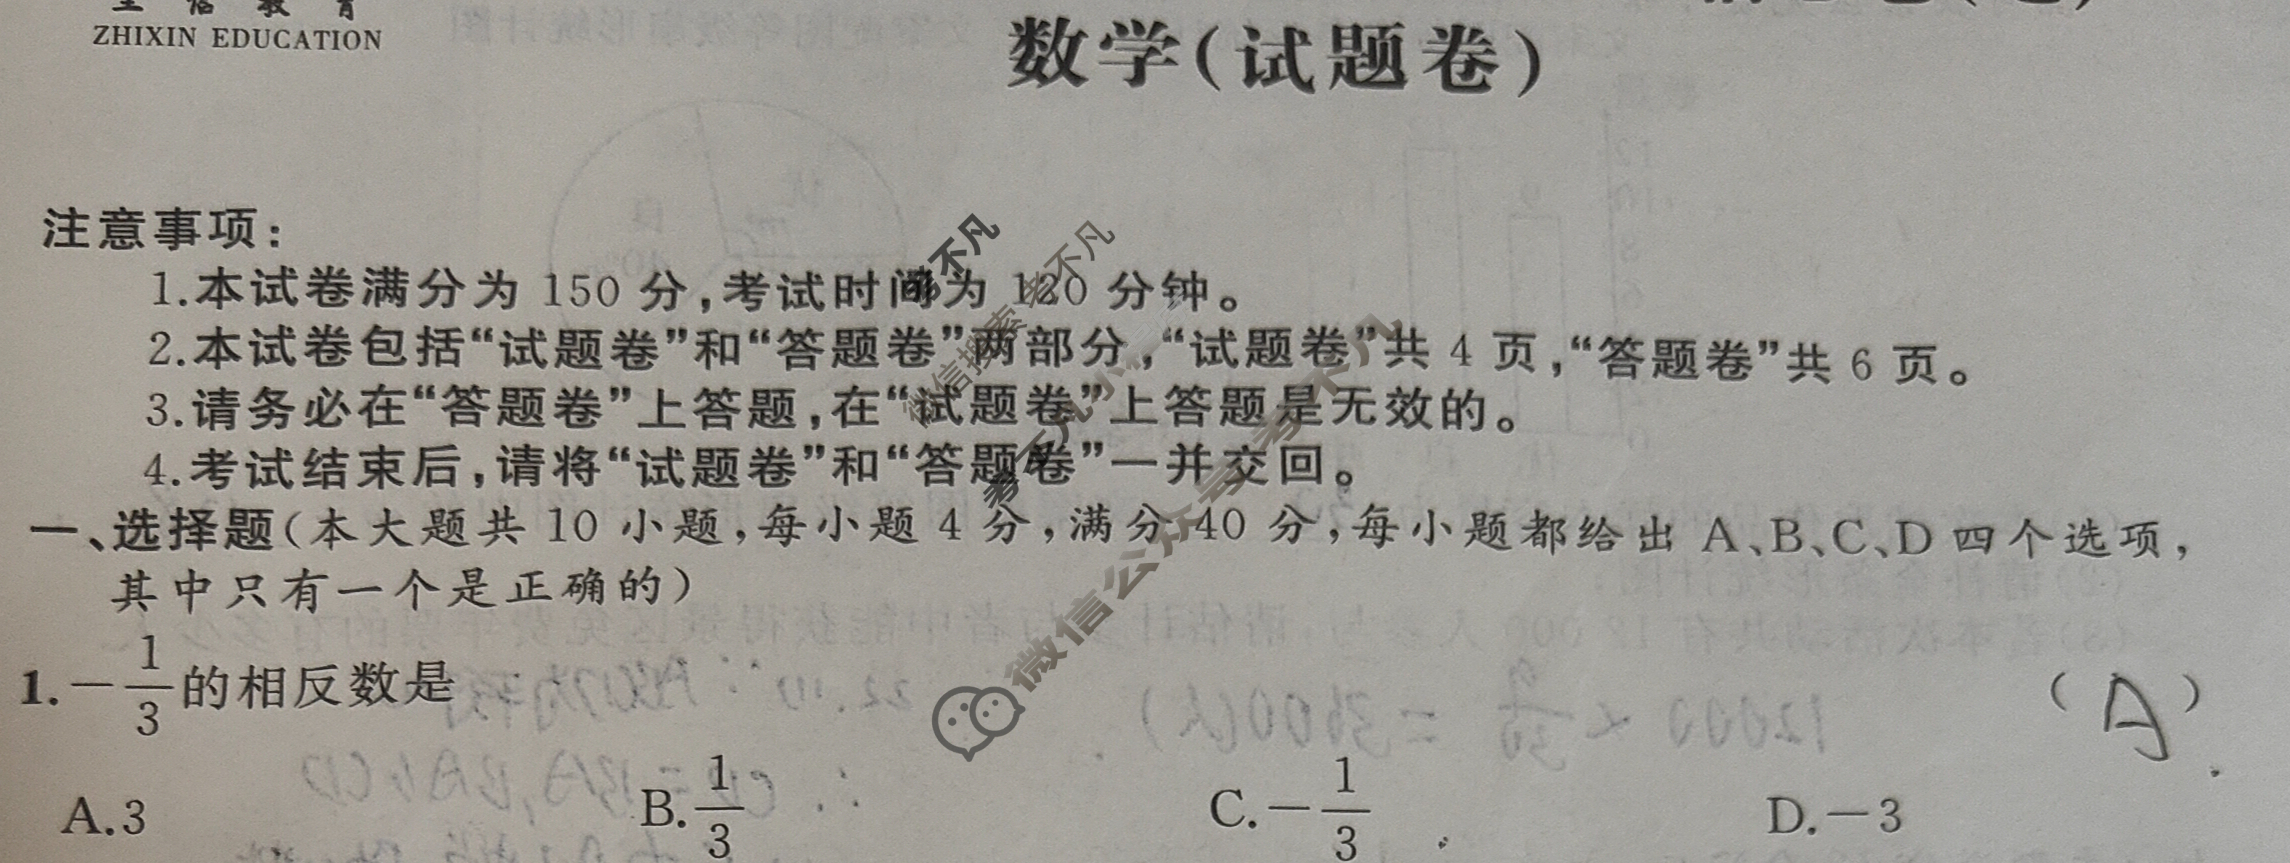 ZHIXIN EDUCATION
数学(试题卷)
注意事项:
1.本试卷满分为 150 分,考试时间为 120 分钟。
2.本试卷包括“试题卷”和“答题卷”两部分,“试题卷”共 4 页,“答题卷”共 6 页。
3.请务必在“答题卷”上答题,在“试题卷”上答题是无效的。
4.考试结束后,请将“试题卷”和“答题卷”一并交回。
一、选择题(本大题共 10 小题,每小题 4 分,满分 40 分,每小题都给出 A、B、C、D 四个选项,
其中只有一个是正确的)
1. -1/3 的相反数是 (A)
A.3 B.1/3 C.-1/3 D.-3
微信公众号 考不凡